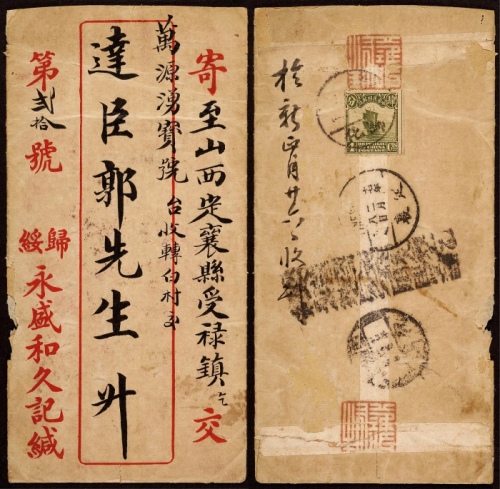 寄至山西定襄縣受祿鎮乞交
萬源湧寶號台收轉白村交
達臣郭先生升
第弍拾號
歸綏
永盛和久記緘
於新正月廿六日收到